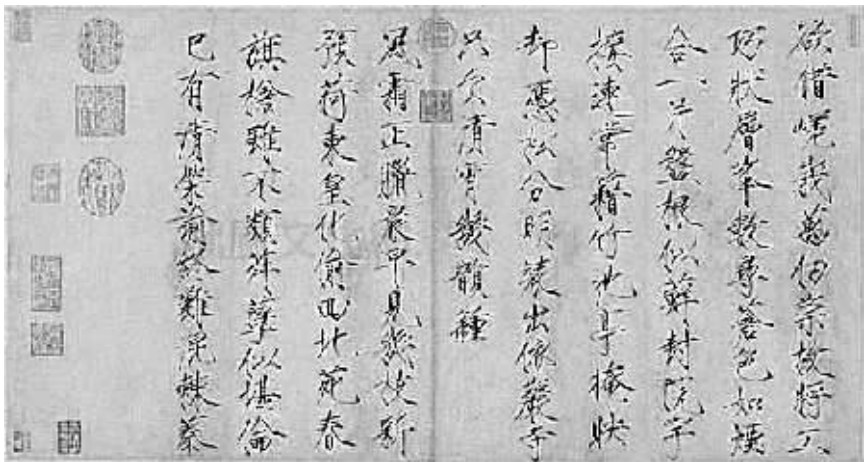 欲借嵯峨萬仞崇故將工
巧狀層峯數尋蒼色如煙
合一片盤根似蘚封院宇
接連常蓄竹池亭掩映
却憑松分明裝出依巖寺
只欠清宵幾韻鍾
風霜正臘晨早見幾枝新
預荷東皇化偏回北苑春
旗槍雖不類荈蘖似堪倫
已有清榮諭終難混棘蓁